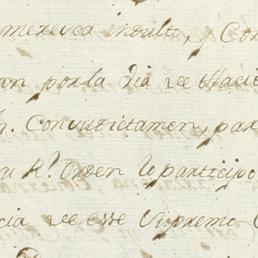 merezca indulto, y Con
an por la via de Haci
n. Con su dictamen, par
su Rl. Orden lo participo
cia de ese Supremo